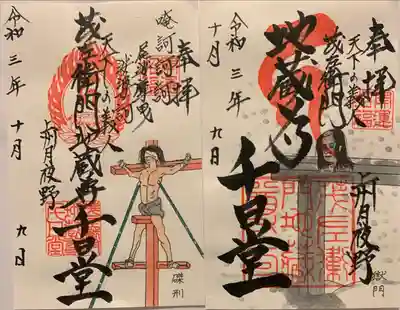 奉拝
唵訶訶訶
天下の義人
茂左衛門地蔵尊
千日堂
上州月夜野
令和三年十月九日
磔刑
奉拝
天下の義人
茂左衛門
地蔵尊
千日堂
上州月夜野
令和三年
十月九日
獄門